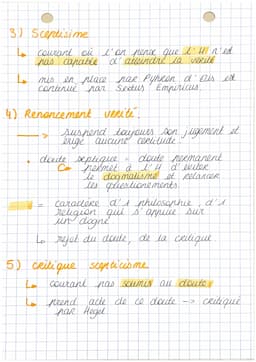 3) Scepticisme
↳ courant où l'on pense que l'H n'est
pas capable d'atteindre la vérité
↳ mis en place par Pyrrhon d'Elis est
continué par Sextus Empiricus.
4) Renoncement vérité.
→ suspend toujours son jugement et
érige aucune certitude.
• doute septique = doute permanent
↳ permet à l'H d'éviter
le dogmatisme et relever
les questionnements.
= caractère d'1 philosophie, d'1
religion qui s'appuie sur
un dogme
↳ rejet du doute, de la critique.
5) critique scepticisme
↳ courant pas soumis au doute
↳ prend acte de ce doute → critiqué
par Hegel.